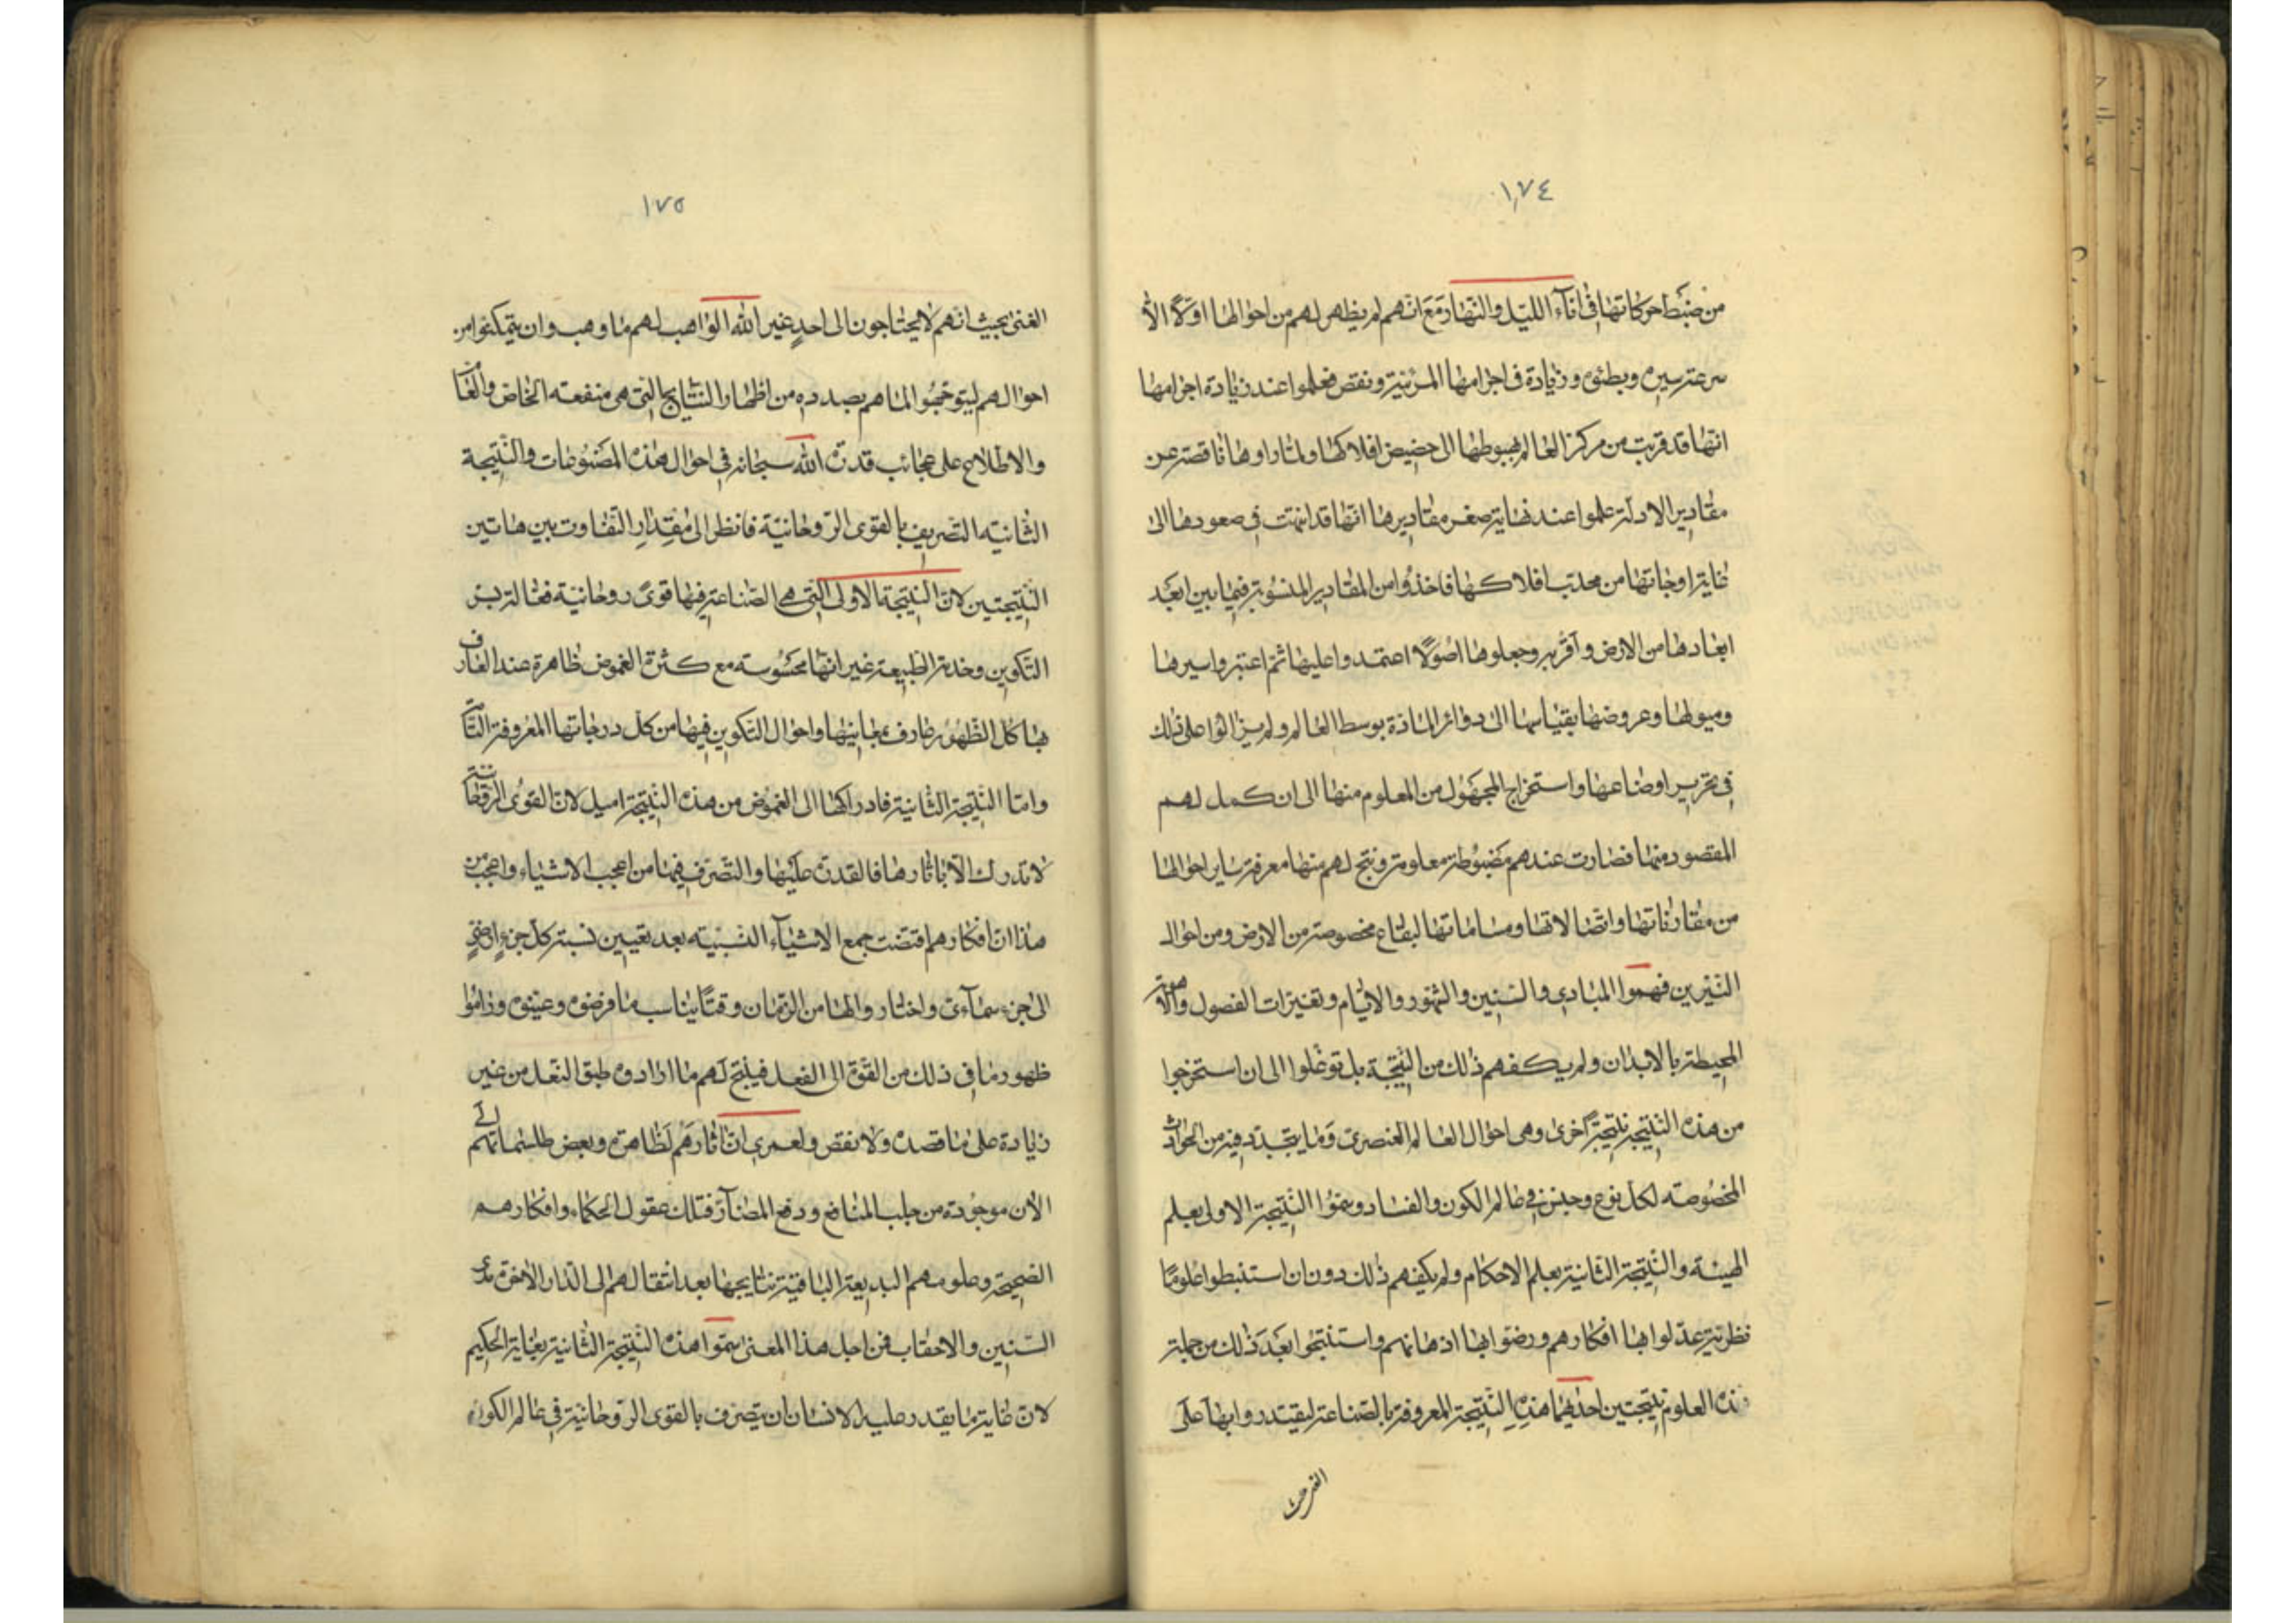 ١٧٤
من ضبط حركاتها في اناء الليل والنهار مع انهم لم يظهر لهم من احوالها اولا الا
سرعة سيره وبطئه وزيادة في اجرامها المرئية ونقص فعلموا عند زيادة اجرامها
انها قد قربت من مركز العالم لهبوطها الى حضيض افلاكها ولما راوها ناقصة عن
مقادير الادلة علموا عند نهاية صغر مقاديرها انها قد انتهت في صعودها الى
غاية اوجاتها من محدب افلاكها فاخذوا من المقادير المنسوبة فيما بين ابعد
ابعادها من الارض وآقربه وجعلوها اصولا اعتمدوا عليها ثم اعتبروا سيرها
وميولها وعروضها بقياسها الى دوائر المارة بوسط العالم ولم يزالوا على ذلك
في تحرير اوضاعها واستخراج المجهول من المعلوم منها الى ان كمل لهم
المقصود منها فصارت عندهم مضبوطة معلومة ونتج لهم منها معرفة ساير احوالها
من مقارناتها واتصالاتها ومسامتاتها لبقاع مخصوصة من الارض ومن احوال
النيرين فهموا المبادي والسنين والشهور والايام وتغيرات الفصول والاهوية
المحيطة بالابدان ولم يكفهم ذلك من النتيجة بل توغلوا الى ان استخرجوا
من هذه النتيجة نتيجة اخرى وهي احوال العالم العنصري وما يتجدد فيه من الحوادث
المخصوصة لكل نوع وجنس في عالم الكون والفساد وسموا النتيجة الاولى بعلم
الهيئة والنتيجة الثانية بعلم الاحكام ولم يكفهم ذلك دون ان استنبطوا علوما
نظرية عدلوا بها افكارهم ورضوا بها اذهانهم واستنتجوا بعد ذلك من جملة
هذه العلوم نتيجتين احداهما هذه النتيجة المعروفة بالصناعة ليقتدروا بها على
١٧٥
الغنى بحيث انهم لا يحتاجون الى احد غير الله الواهب لهم ما وهب وان يتمكنوا من
احوالهم ليتوجهوا لما هم بصدده من اظهار النتايج التي هي منفعته الخاص والعام
والاطلاع على عجائب قدرة الله سبحانه في احوال هذه المصنوعات والنتيجة
الثانيه التصريف بالقوى الروحانية فانظر الى مقدار التفاوت بين هاتين
النتيجتين لان النتيجة الاولى التي هي الصناعة فيها قوى روحانية فعالة بسر
التكوين وخدمة الطبيعة غير انها محسوسة مع كثرة الغموض ظاهرة عند العارف
بها كل الظهور عارف بمباينها واحوال التكوين فيها من كل درجاتها المعروفة التامة
واما النتيجة الثانية فادراكها الى الغموض من هذه النتيجة اميل لان القوى الروحانية
لا تدرك الا باثارها فالقدرة عليها والتصرف فيها من اعجب الاشياء واعجب من
هذا ان افكارهم اقتضت جمع الاشياء النسبيته بعد تعيين نسبة كل جزء ارضي
الى جزء سماءي واختاروا لها من الزمان وقتا يناسب ما فرضوه وعينوه وراموا
ظهور ما في ذلك من القوة الى الفعل فينتج لهم ما ارادوه طبق النعل من غير
زيادة على ما قصده ولا نقص ولعمري ان اثارهم لظاهرة وبعض طلسماتهم الى
الآن موجودة من جلب المنافع ودفع المضار فتلك عقول الحكماء وافكارهم
الصحيحة وعلومهم البديعة الباقية نتايجها بعد انتقالهم الى الدار الآخرة مدى
السنين والاحقاب فمن اجل هذا المعنى سموا هذه النتيجة الثانية بغاية الحكيم
لان غاية ما يقدر عليه الانسان ان يتصرف بالقوى الروحانية في عالم الكون